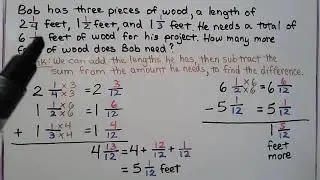 Bob has three pieces of wood, a length of
2 1/4 feet, 1 1/2 feet, and 1 1/3 feet. He needs a total of
6 feet of wood for his project. How many more
of wood does Bob need?
We can add the lengths he has, then subtract the
sum from the amount he needs, to find the difference.
2 1/4 ×3 ×3 = 2 3/12
1 1/2 ×6 ×6 = 1 6/12
+ 1 1/3 ×4 ×4 = 1 4/12
4 13/12 = 4 + 12/12 + 1/12
= 5 1/12 feet
6 1/2 ×6 ×6 = 6 6/12
- 5 1/12 = 5 1/12
1 5/12
feet
more